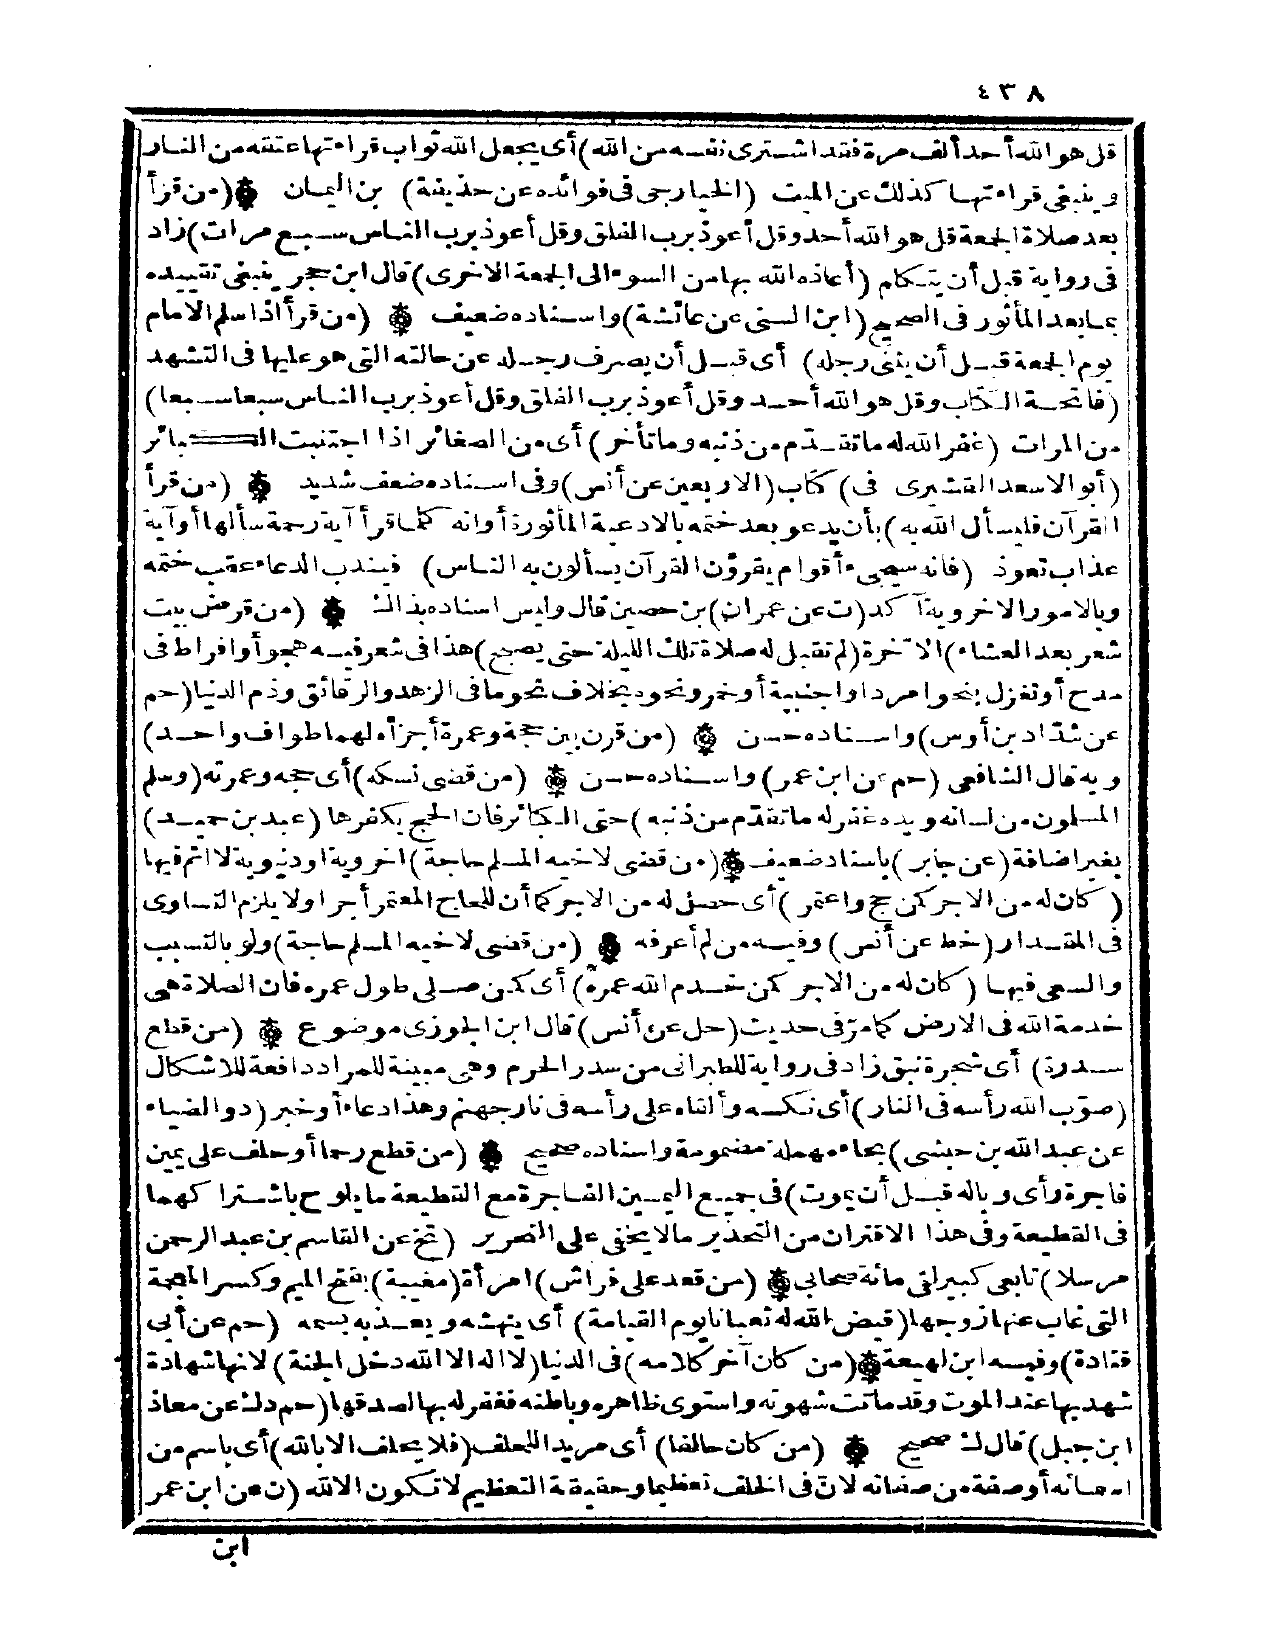 ٤٣٨
قل هو الله أحد ألف مرة فقد اشترى نفسه من الله) أى يجعل الله ثواب قراءتها عتقه من النار
وينبغى قراءتها كذلك عن الميت (الخيارجى فى فوائده عن حذيفة) بن اليمان (من قرأ
بعد صلاة الجمعة قل هو الله أحد وقل أعوذ برب الفلق وقل أعوذ برب الناس سبع مرات) زاد
فى رواية قبل أن يتكلم (أعاذه الله بها من السوء الى الجمعة الاخرى) قال ابن حجر ينبغى تقييده
بما بعد المأثور فى الصحيح (ابن السنى عن عائشة) واسناده ضعيف (من قرأ اذا سلم الامام
يوم الجمعة قبل أن يثنى رجله) أى قبل أن يصرف رجله عن حالته التى هو عليها فى التشهد
(فاتحة الكتاب وقل هو الله أحد وقل أعوذ برب الفلق وقل أعوذ برب الناس سبعا سبعا)
من المرات (غفر الله له ما تقدم من ذنبه وما تأخر) أى من الصغائر اذا اجتنبت الكبائر
(أبو الاسعد القشيرى فى) كتاب (الاربعين عن أنس) وفى اسناده ضعف شديد (من قرأ
القرآن فليسأل الله به) بأن يدعو بعد ختمه بالادعية المأثورة أو انه كلما قرأ آية رحمة سألها أو آية
عذاب تعوذ (فانه سيجىء أقوام يقرؤن القرآن يسألون به الناس) فيندب الدعاء عقب ختمه
وبالامور الاخروية آكد (ت عن عمران) بن حصين قال وليس اسناده بذاك (من قرض بيت
شعر بعد العشاء) الآخرة (لم تقبل له صلاة تلك الليلة حتى يصبح) هذا فى شعر فيه هجو أو افراط فى
مدح أو تغزل بنحو امرد او اجنبية أو خمر ونحوه بخلاف نحو ما فى الزهد والرقائق وذم الدنيا (حم
عن شداد بن أوس) واسناده حسن (من قرن بين حجة وعمرة أجزأه لهما طواف واحد)
وبه قال الشافعى (حم عن ابن عمر) واسناده حسن (من قضى نسكه) أى حجه وعمرته (وسلم
المسلمون من لسانه ويده غفر له ما تقدم من ذنبه) حتى الكبائر فان الحج يكفرها (عبد بن حميد)
بغير اضافة (عن جابر) باسناد ضعيف (من قضى لاخيه المسلم حاجة) اخروية او دنيوية لا اثم فيها
(كان له من الاجر كمن حج واعتمر) أى حصل له من الاجر كما أن للحاج المعتمر أجرا ولا يلزم التساوى
فى المقدار (خط عن أنس) وفيه من لم أعرفه (من قضى لاخيه المسلم حاجة) ولو بالتسبب
والسعى فيها (كان له من الاجر كمن خدم الله عمره) أى كمن صلى طول عمره فان الصلاة هى
خدمة الله فى الارض كما مرّ فى حديث (حل عن أنس) قال ابن الجوزى موضوع (من قطع
سدرة) أى شجرة نبق زاد فى رواية للطبرانى من سدر الحرم وهى مبينة للمراد دافعة للاشكال
(صوّب الله رأسه فى النار) أى نكسه وألقاه على رأسه فى نار جهنم وهذا دعاء أو خبر (د والضياء
عن عبد الله بن حبشى) بحاء مهملة مضمومة واسناده صحيح (من قطع رحما أو حلف على يمين
فاجرة رأى وباله قبل أن يموت) فى جميع اليمين الفاجرة مع القطيعة ما يلوح باشتراكهما
فى القطيعة وفى هذا الاقتران من التحذير ما لا يخفى على النحرير (تخ عن القاسم بن عبد الرحمن
مرسلا) تابعى كبير لقى مائة صحابى (من قعد على فراش) امرأة (مغيبة) بفتح الميم وكسر المعجمة
التى غاب عنها زوجها (قيض الله له ثعبانا يوم القيامة) أى ينهشه ويعذبه بسمه (حم عن أبى
قتادة) وفيه ابن لهيعة (من كان آخر كلامه) فى الدنيا (لا اله الا الله دخل الجنة) لانها شهادة
شهد بها عند الموت وقد ماتت شهوته واستوى ظاهره وباطنه فغفر له بها لصدقها (حم د ك عن معاذ
ابن جبل) قال ك صحيح (من كان حالفا) أى مريد اللحلف (فلا يحلف الا بالله) أى باسم من
اسمائه أو صفة من صفاته لان فى الحلف تعظيما وحقيقة التعظيم لا تكون الا لله (ن عن ابن عمر
ابن